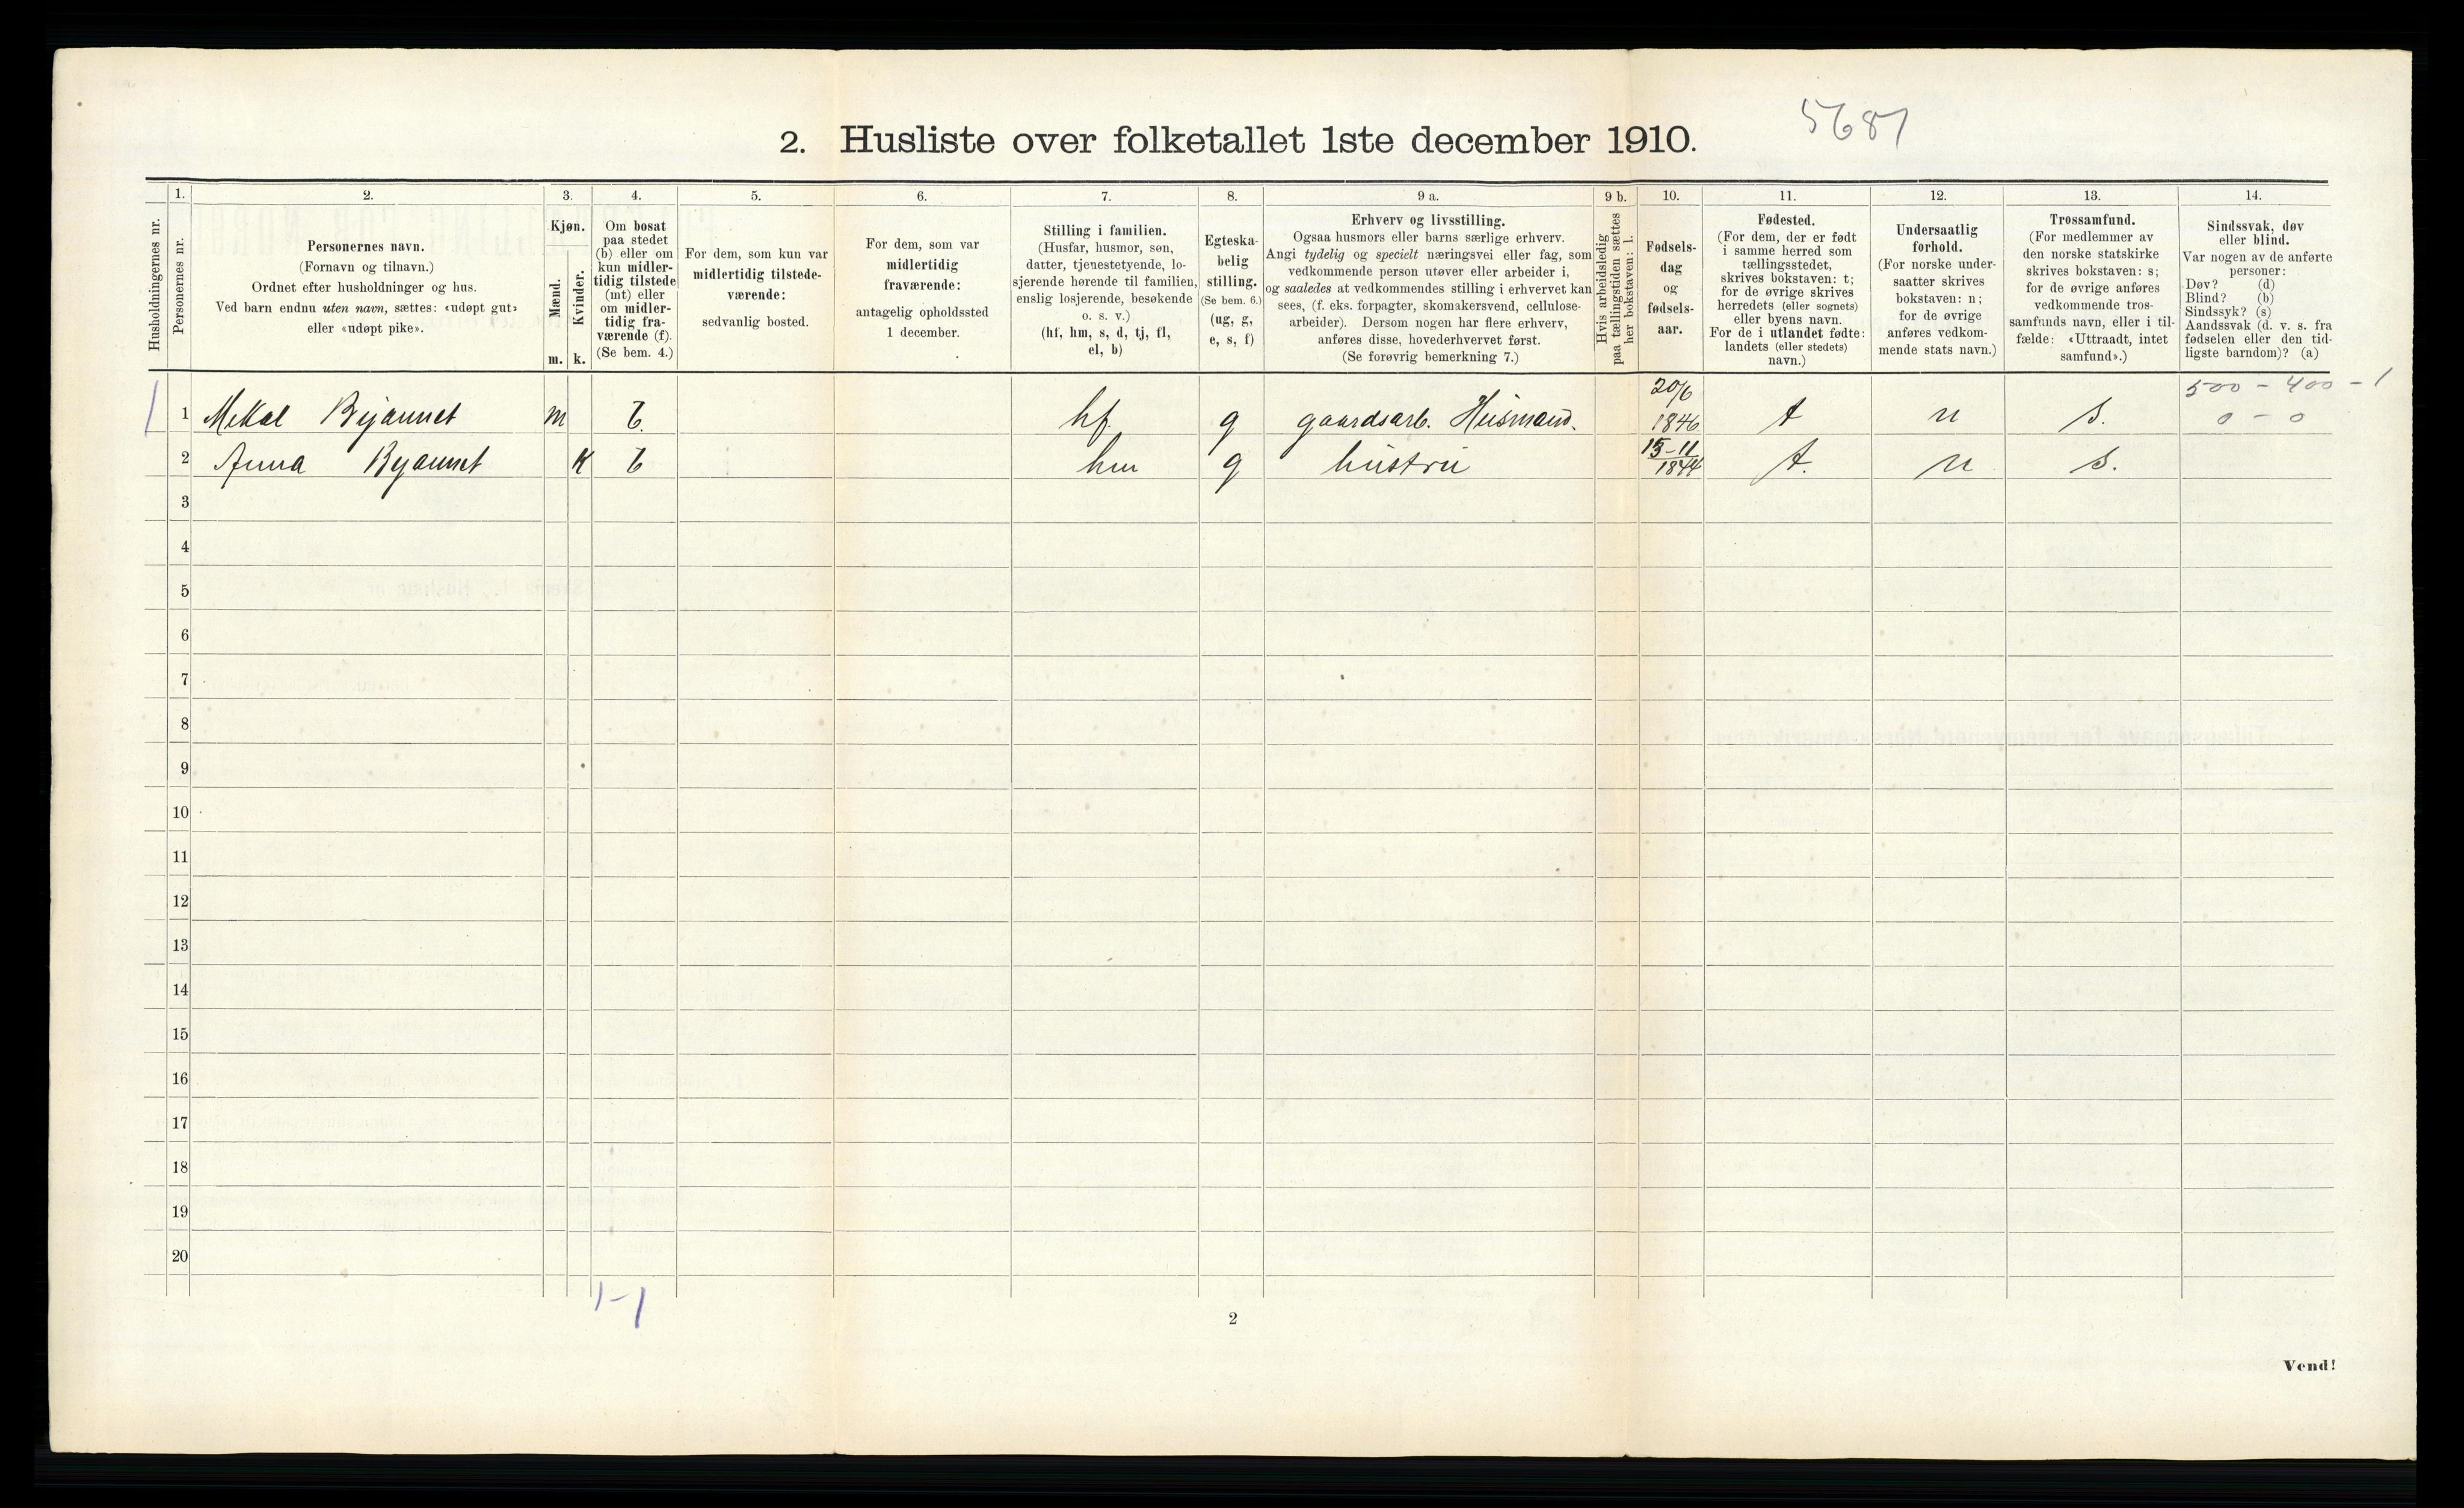 5681
2. Husliste over folketallet 1ste december 1910.
Husholdningernes nr.
1.
Personernes nr.
2.
Personernes navn.
(Fornavn og tilnavn.)
Ordnet efter husholdninger og hus.
Ved barn endnu uten navn, sættes: «udøpt gut»
eller «udøpt pike».
3.
Kjøn.
Mænd.
Kvinder.
m. k.
4.
Om bosat
paa stedet
(b) eller om
kun midler-
tidig tilstede
(mt) eller
om midler-
tidig fra-
værende (f).
(Se bem. 4.)
5.
For dem, som kun var
midlertidig tilstede-
værende:
sedvanlig bosted.
6.
For dem, som var
midlertidig
fraværende:
antagelig opholdssted
1 december.
7.
Stilling i familien.
(Husfar, husmor, søn,
datter, tjenestetyende, lo-
sjerende hørende til familien,
enslig losjerende, besøkende
o. s. v.)
(hf, hm, s, d, tj, fl,
el, b)
8.
Egteska-
belig
stilling.
(Se bem. 6.)
(ug, g,
e, s, f)
9 a.
Erhverv og livsstilling.
Ogsaa husmors eller barns særlige erhverv.
Angi tydelig og specielt næringsvei eller fag, som
vedkommende person utøver eller arbeider i,
og saaledes at vedkommendes stilling i erhvervet kan
sees, (f. eks. forpagter, skomakersvend, cellulose-
arbeider). Dersom nogen har flere erhverv,
anføres disse, hovederhvervet først.
(Se forøvrig bemerkning 7.)
9 b.
Hvis arbeidsledig
paa tællingstiden sættes
her bokstaven: l.
10.
Fødsels-
dag
og
fødsels-
aar.
11.
Fødested.
(For dem, der er født
i samme herred som
tællingsstedet,
skrives bokstaven: t;
for de øvrige skrives
herredets (eller sognets)
eller byens navn.
For de i utlandet fødte:
landets (eller stedets)
navn.)
12.
Undersaatlig
forhold.
(For norske under-
saatter skrives
bokstaven: n;
for de øvrige
anføres vedkom-
mende stats navn.)
13.
Trossamfund.
(For medlemmer av
den norske statskirke
skrives bokstaven: s;
for de øvrige anføres
vedkommende tros-
samfunds navn, eller i til-
fælde: «Uttraadt, intet
samfund».)
14.
Sindssvak, døv
eller blind.
Var nogen av de anførte
personer:
Døv? (d)
Blind? (b)
Sindssyk? (s)
Aandssvak (d. v. s. fra
fødselen eller den tid-
ligste barndom)? (a)
20/6 500 - 400 - 1
1 1 Mekal Bejaunet m b. hf. g gaardsarb. Husmand. 1846 t n s. 0 - 0
15-11
2 Anna Bejaunet K b hm g hustru 1844 t. n s.
3
4
5
6
7
8
9
10
11
12
13
14
15
16
17
18
19
20
1-1
2
Vend!